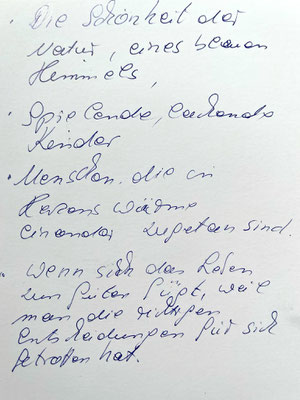 · Die Schönheit der
Natur, eines blauen
Himmels,
· Spielende, lachende
Kinder
· Menschen die in
Herzens Wärme
einander zugetan sind.
" Wenn sich das Leben
zum Guten fügt, weil
man die richtigen
Entscheidungen für sich
getroffen hat.